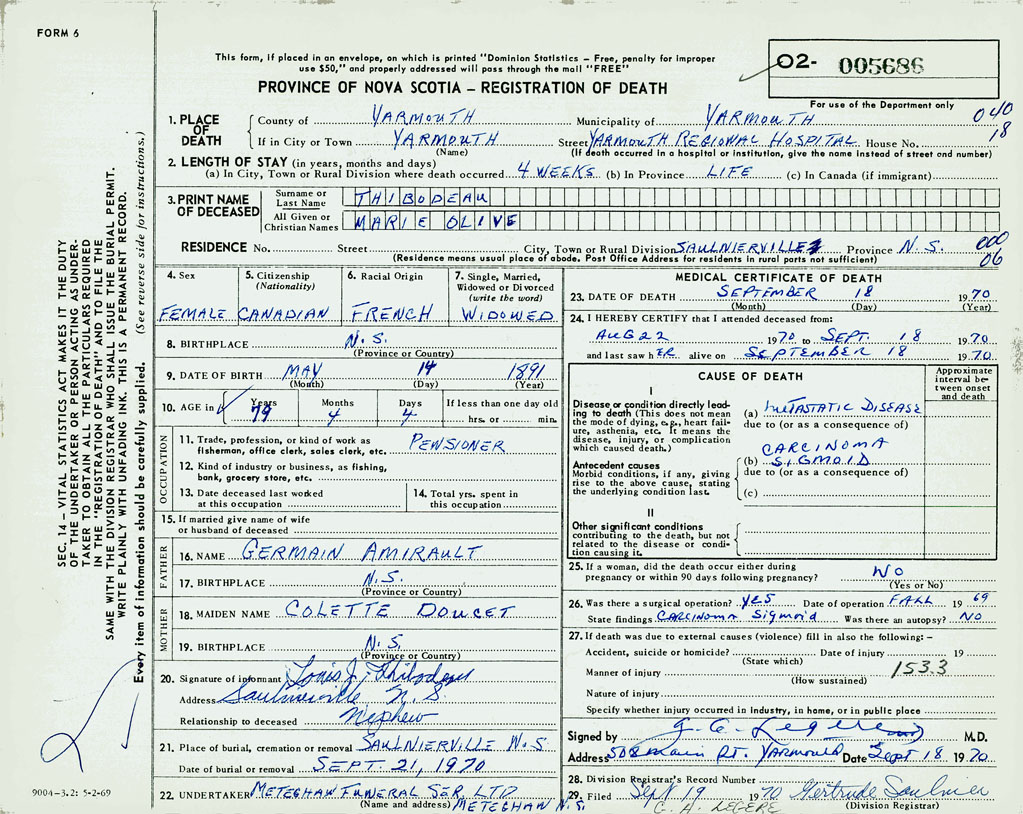 FORM 6
This form, if placed in an envelope, on which is printed "Dominion Statistics – Free, penalty for improper
use $50," and properly addressed will pass through the mail "FREE"
02- 005686
PROVINCE OF NOVA SCOTIA – REGISTRATION OF DEATH
For use of the Department only
1. PLACE OF DEATH
County of YARMOUTH Municipality of YARMOUTH 040
If in City or Town YARMOUTH Street YARMOUTH REGIONAL HOSPITAL House No. 18
(Name) (If death occurred in a hospital or institution, give the name instead of street and number)
2. LENGTH OF STAY (in years, months and days)
(a) In City, Town or Rural Division where death occurred 4 WEEKS (b) In Province LIFE (c) In Canada (if immigrant)
3. PRINT NAME OF DECEASED
Surname or Last Name THIBODEAU
All Given or Christian Names MARIE OLIVE
RESIDENCE No. Street City, Town or Rural Division SAULNIERVILLE Province N.S. 000
(Residence means usual place of abode. Post Office Address for residents in rural parts not sufficient) 06
4. Sex FEMALE
5. Citizenship (Nationality) CANADIAN
6. Racial Origin FRENCH
7. Single, Married, Widowed or Divorced (write the word) WIDOWED
8. BIRTHPLACE N.S.
(Province or Country)
9. DATE OF BIRTH MAY 14 1891
(Month) (Day) (Year)
10. AGE in Years 79 Months 4 Days 4 If less than one day old hrs. or min.
OCCUPATION
11. Trade, profession, or kind of work as
fisherman, office clerk, sales clerk, etc. PENSIONER
12. Kind of industry or business, as fishing,
bank, grocery store, etc.
13. Date deceased last worked
at this occupation
14. Total yrs. spent in
this occupation
15. If married give name of wife
or husband of deceased
FATHER
16. NAME GERMAIN AMIRAULT
17. BIRTHPLACE N.S.
(Province or Country)
MOTHER
18. MAIDEN NAME COLETTE DOUCET
19. BIRTHPLACE N.S.
(Province or Country)
20. Signature of informant Louis J. Thibodeau
Address Saulnierville N.S.
Relationship to deceased Nephew
21. Place of burial, cremation or removal SAULNIERVILLE N.S.
Date of burial or removal SEPT. 21, 1970
22. UNDERTAKER METEGHAN FUNERAL SER. LTD
(Name and address) METEGHAN N.S.
MEDICAL CERTIFICATE OF DEATH
23. DATE OF DEATH SEPTEMBER 18 1970
(Month) (Day) (Year)
24. I HEREBY CERTIFY that I attended deceased from:
AUG 22 1970 to SEPT. 18 1970
and last saw hER alive on SEPTEMBER 18 1970
CAUSE OF DEATH
Approximate interval between onset and death
I
Disease or condition directly leading to death (This does not mean
the mode of dying, e.g., heart failure, asthenia, etc. It means the
disease, injury, or complication
which caused death.)
(a) METASTATIC DISEASE
due to (or as a consequence of)
Antecedent causes
Morbid conditions, if any, giving
rise to the above cause, stating
the underlying condition last.
CARCINOMA
(b) SIGMOID
due to (or as a consequence of)
(c)
II
Other significant conditions
contributing to the death, but not
related to the disease or condition causing it.
25. If a woman, did the death occur either during
pregnancy or within 90 days following pregnancy? NO
(Yes or No)
26. Was there a surgical operation? YES Date of operation FALL 1969
State findings CARCINOMA Sigmoid Was there an autopsy? NO
27. If death was due to external causes (violence) fill in also the following: –
Accident, suicide or homicide? Date of injury 19
(State which)
Manner of injury 153.3
(How sustained)
Nature of injury
Specify whether injury occurred in industry, in home, or in public place
Signed by M.D.
Address 508 main St. YARMOUTH Date Sept 18 1970
28. Division Registrar's Record Number
29. Filed Sept 19 1970 Gertrude Saulnier
G. A. LEGERE (Division Registrar)
SEC. 14 – VITAL STATISTICS ACT MAKES IT THE DUTY
OF THE UNDERTAKER OR PERSON ACTING AS UNDER-
TAKER TO OBTAIN ALL THE PARTICULARS REQUIRED
IN THE "REGISTRATION OF DEATH" AND TO FILE THE
SAME WITH THE DIVISION REGISTRAR WHO SHALL ISSUE THE BURIAL PERMIT.
WRITE PLAINLY WITH UNFADING INK. THIS IS A PERMANENT RECORD.
Every item of information should be carefully supplied. (See reverse side for instructions.)
9004–3.2: 5-2-69